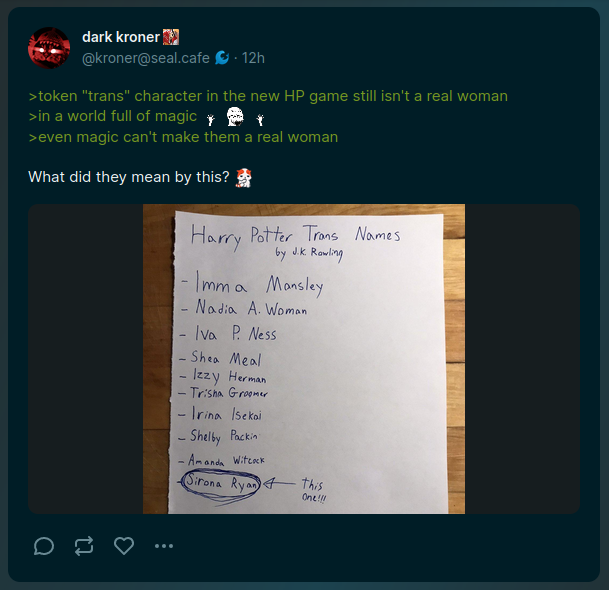 dark kroner
@kroner@seal.cafe · 12h
>token "trans" character in the new HP game still isn't a real woman
>in a world full of magic
>even magic can't make them a real woman
What did they mean by this?
Harry Potter Trans Names
by J.K. Rowling
- Imma Mansley
- Nadia A. Woman
- Iva P. Ness
- Shea Meal
- Izzy Herman
- Trisha Groomer
- Irina Isekai
- Shelby Packin
- Amanda Witcock
- Sirona Ryan ← This
one!!!